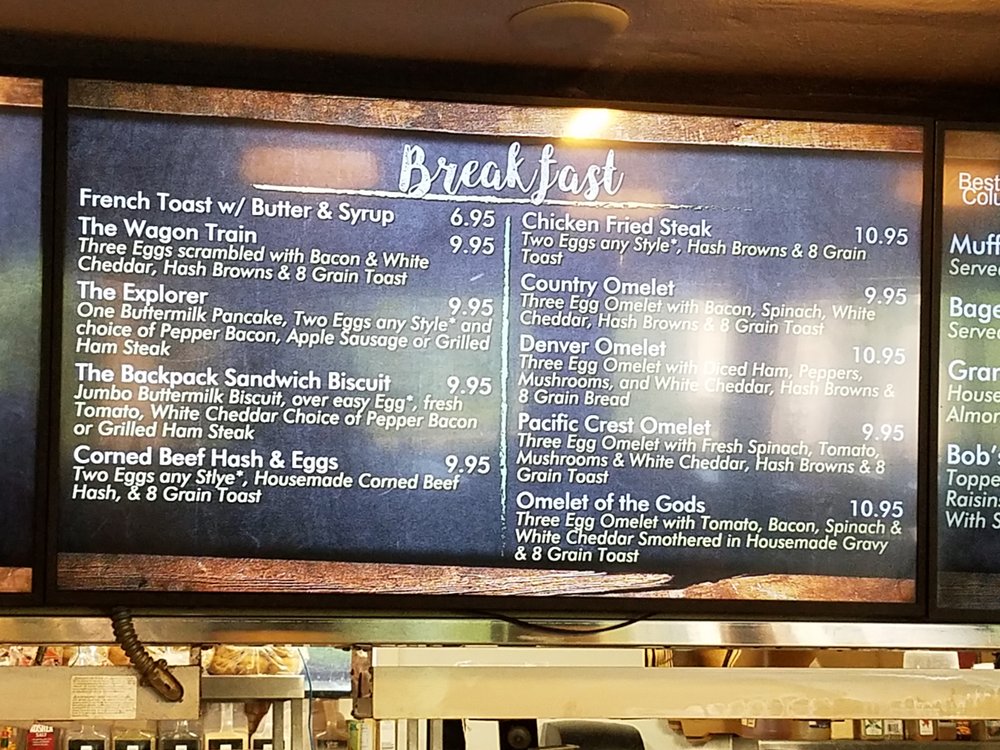 Breakfast
French Toast w/ Butter & Syrup 6.95
The Wagon Train 9.95
Three Eggs scrambled with Bacon & White
Cheddar, Hash Browns & 8 Grain Toast
The Explorer 9.95
One Buttermilk Pancake, Two Eggs any Style* and
choice of Pepper Bacon, Apple Sausage or Grilled
Ham Steak
The Backpack Sandwich Biscuit 9.95
Jumbo Buttermilk Biscuit, over easy Egg*, fresh
Tomato, White Cheddar Choice of Pepper Bacon
or Grilled Ham Steak
Corned Beef Hash & Eggs 9.95
Two Eggs any Stlye*, Housemade Corned Beef
Hash, & 8 Grain Toast
Chicken Fried Steak 10.95
Two Eggs any Style*, Hash Browns & 8 Grain
Toast
Country Omelet 9.95
Three Egg Omelet with Bacon, Spinach, White
Cheddar, Hash Browns & 8 Grain Toast
Denver Omelet 10.95
Three Egg Omelet with Diced Ham, Peppers,
Mushrooms, and White Cheddar, Hash Browns &
8 Grain Bread
Pacific Crest Omelet 9.95
Three Egg Omelet with Fresh Spinach, Tomato,
Mushrooms & White Cheddar, Hash Browns & 8
Grain Toast
Omelet of the Gods 10.95
Three Egg Omelet with Tomato, Bacon, Spinach &
White Cheddar Smothered in Housemade Gravy
& 8 Grain Toast
Best
Colu
Muff
Serve
Bage
Serve
Gran
House
Almor
Bob's
Toppe
Raisin
With S